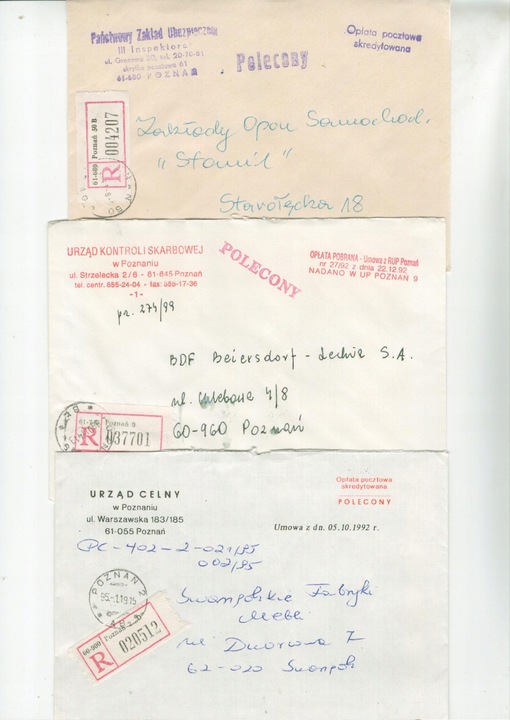 Państwowy Zakład Ubezpieczeń
III Inspektorat
ul. Gronowa 20, tel. 20-70-61
skrytka pocztowa 61
61-680 POZNAŃ
Polecony
Opłata pocztowa
skredytowana
61-680 Poznań 50 B
R 004207
Zakłady Opon Samochod.
„Stomil"
Starołęcka 18
URZĄD KONTROLI SKARBOWEJ
w Poznaniu
ul. Strzelecka 2/6 - 61-845 Poznań
tel. centr. 855-24-04 - fax:
-1-
POLECONY
OPŁATA POBRANA - Umowa z RUP Poznań
nr 27/92 z dnia 22.12.92
NADANO W UP POZNAŃ 9
pr. 274/99
BDF Beiersdorf-Lechia S.A.
ul. Chlebowa 4/8
60-960 Poznań
Poznań 9
R 037701
URZĄD CELNY
w Poznaniu
ul. Warszawska 183/185
61-055 Poznań
Opłata pocztowa
skredytowana
POLECONY
Umowa z dn. 05.10.1992 r.
PC-402-2-021/95
002/95
POZNAŃ 2
Swarzędzkie Fabryki
Mebli
ul Dworcowa 7
62-020 Swarzędz
60-900 Poznań 2
R 020512